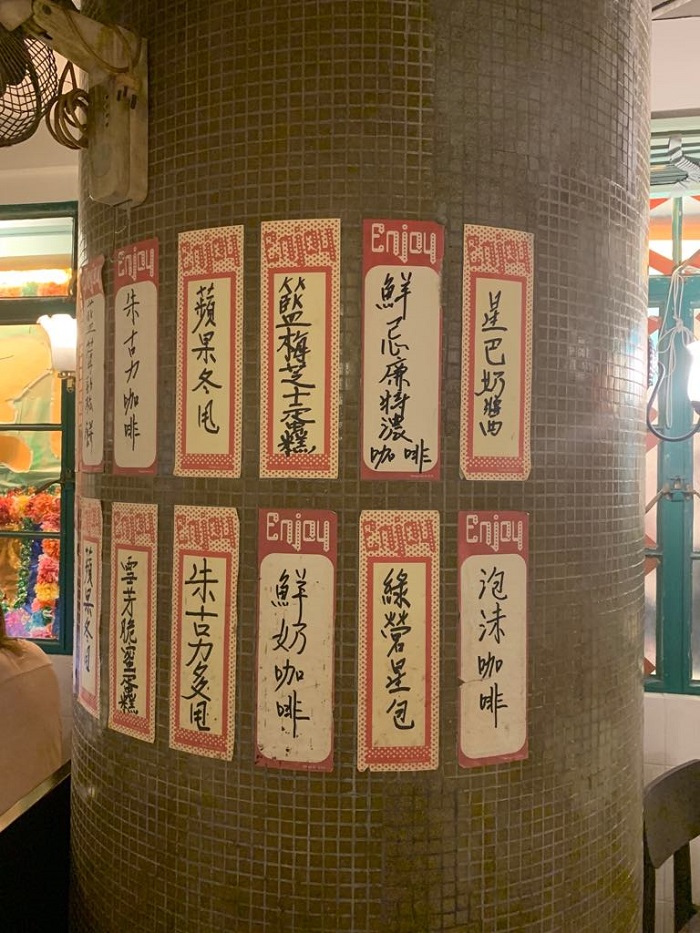 Enjoy
朱古力咖啡
Enjoy
蘋果冬甩
Enjoy
籃梅芝士蛋糕
Enjoy
鮮忌廉特濃
咖啡
Enjoy
星巴奶醬
蘋果冬甩
Enjoy
雪芽脆蜜蛋糕
Enjoy
朱古力多甩
Enjoy
鮮奶咖啡
Enjoy
綠營星包
Enjoy
泡沫咖啡